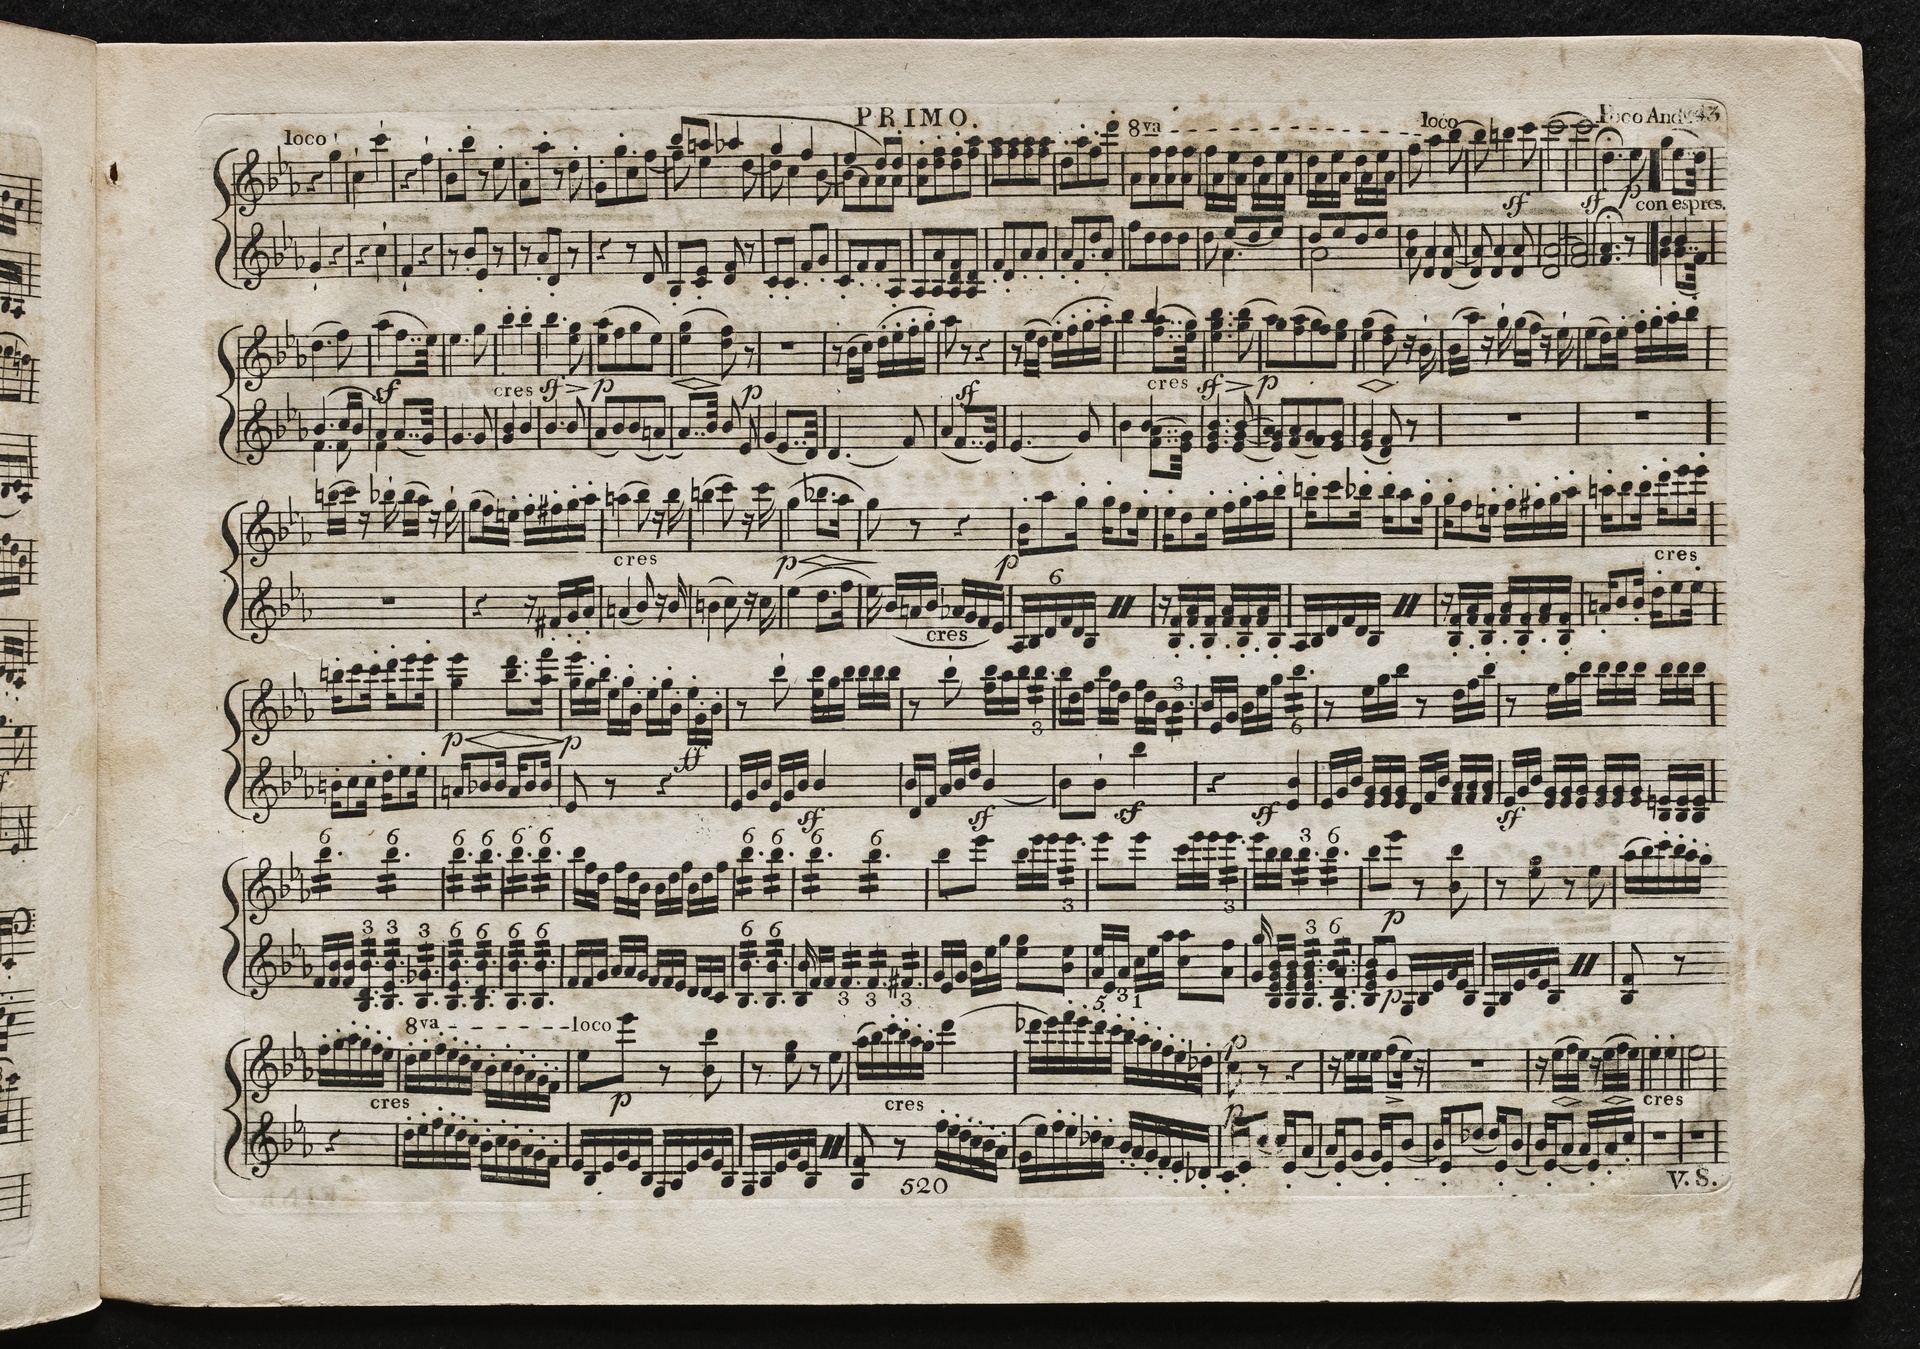 PRIMO.
loco 8va loco Poco And. 43
sf sf p con espres.
sf cres sf p p sf cres sf p
cres p p cres
6
cres
3 3 6
p p ff
sf sf sf sf sf
6 6 6 6 6 6 6 6 6 6 3 6
3 3
p
3 3 3 6 6 6 6 6 6 3 6
3 3 3 5 3 1 p
8va loco p
cres p cres p cres
520 V.S.